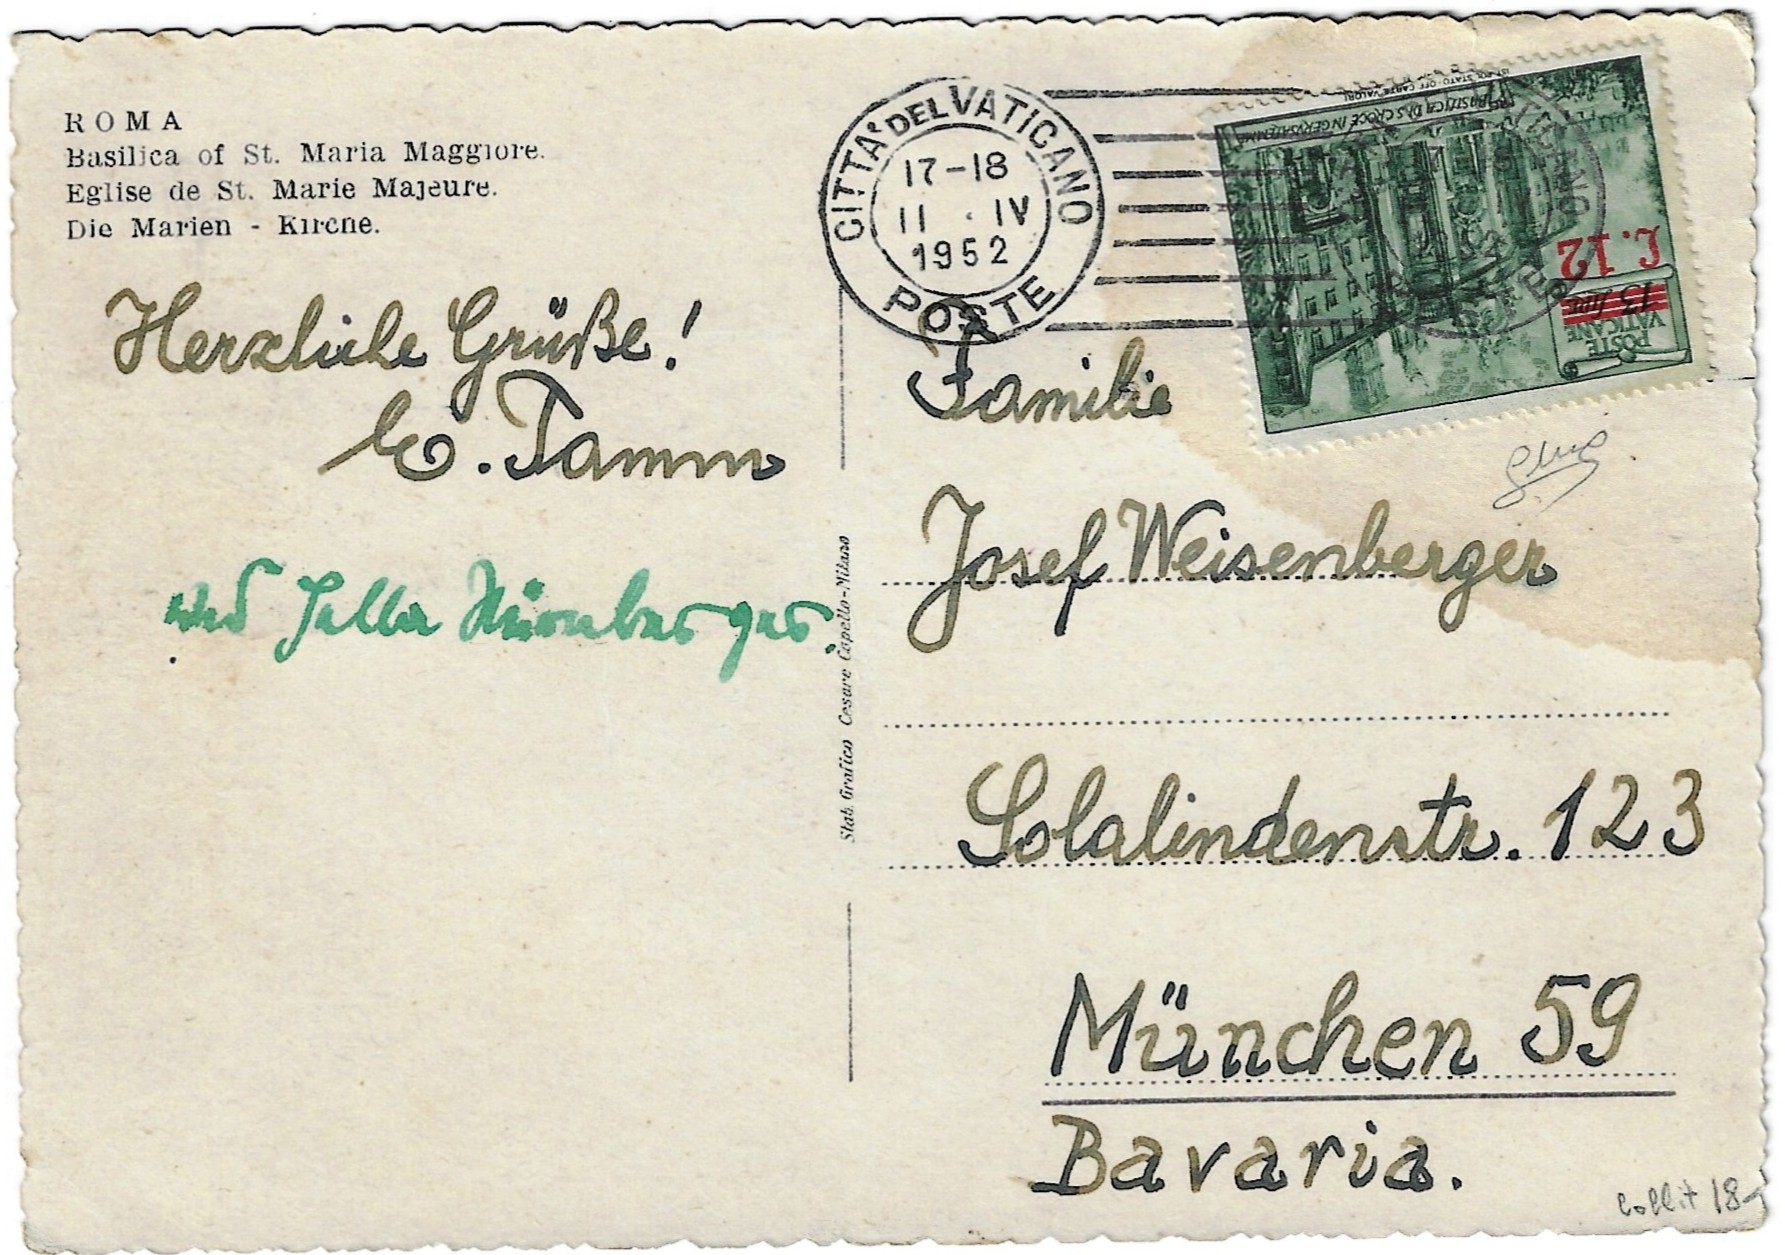 ROMA
Basilica of St. Maria Maggiore.
Eglise de St. Marie Majeure.
Die Marien - Kirche.
CITTA' DEL VATICANO
17-18
11 . IV
1952
POSTE
IST. POL. STATO - OFF. CARTE VALORI
BASILICA DI S. CROCE IN GERUSALEMME
£. 12
13 lire
POSTE
VATICANE
Herzliche Grüße!
E. Tamm
und Nürnberger.
Stab. Grafico Cesare Capello-Milano
Familie
Josef Weisenberger
Solalindenstr. 123
München 59
Bavaria.